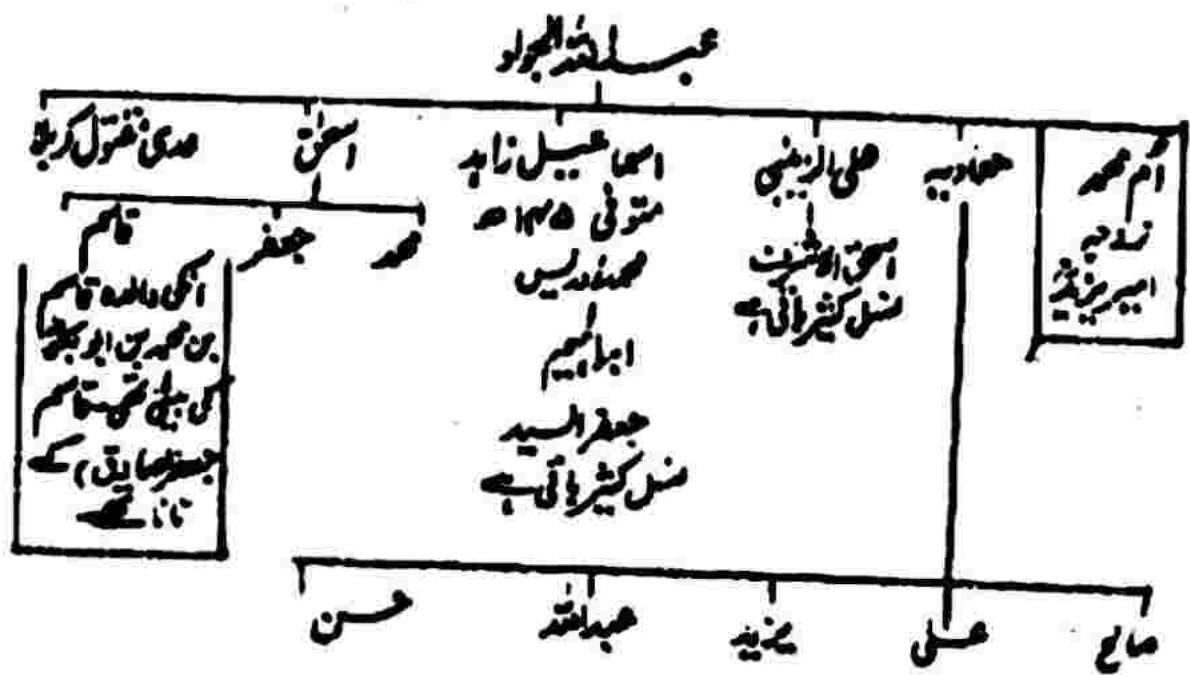 عبد اللہ الجواد
اُم محمد
زوجہ
امیر یزیدؒ
معاویہ
علی الزینبی
اسحق الاشرف
نسل کثیر باقی ہے
اسماعیل زاہد
متوفی ۱۴۵ھ
محمد ادریس
ابراہیم
جعفر السید
نسل کثیر باقی ہے
اسحٰق
محمد
جعفر
قاسم
انکی والدہ قاسم
بن محمد بن ابوبکرؓ
کی بیٹی تھی قاسم
جعفر صادق کے
نانا تھے
عدی مقتول کربلا
صالح
علی
یزید
عبداللہ
حسن